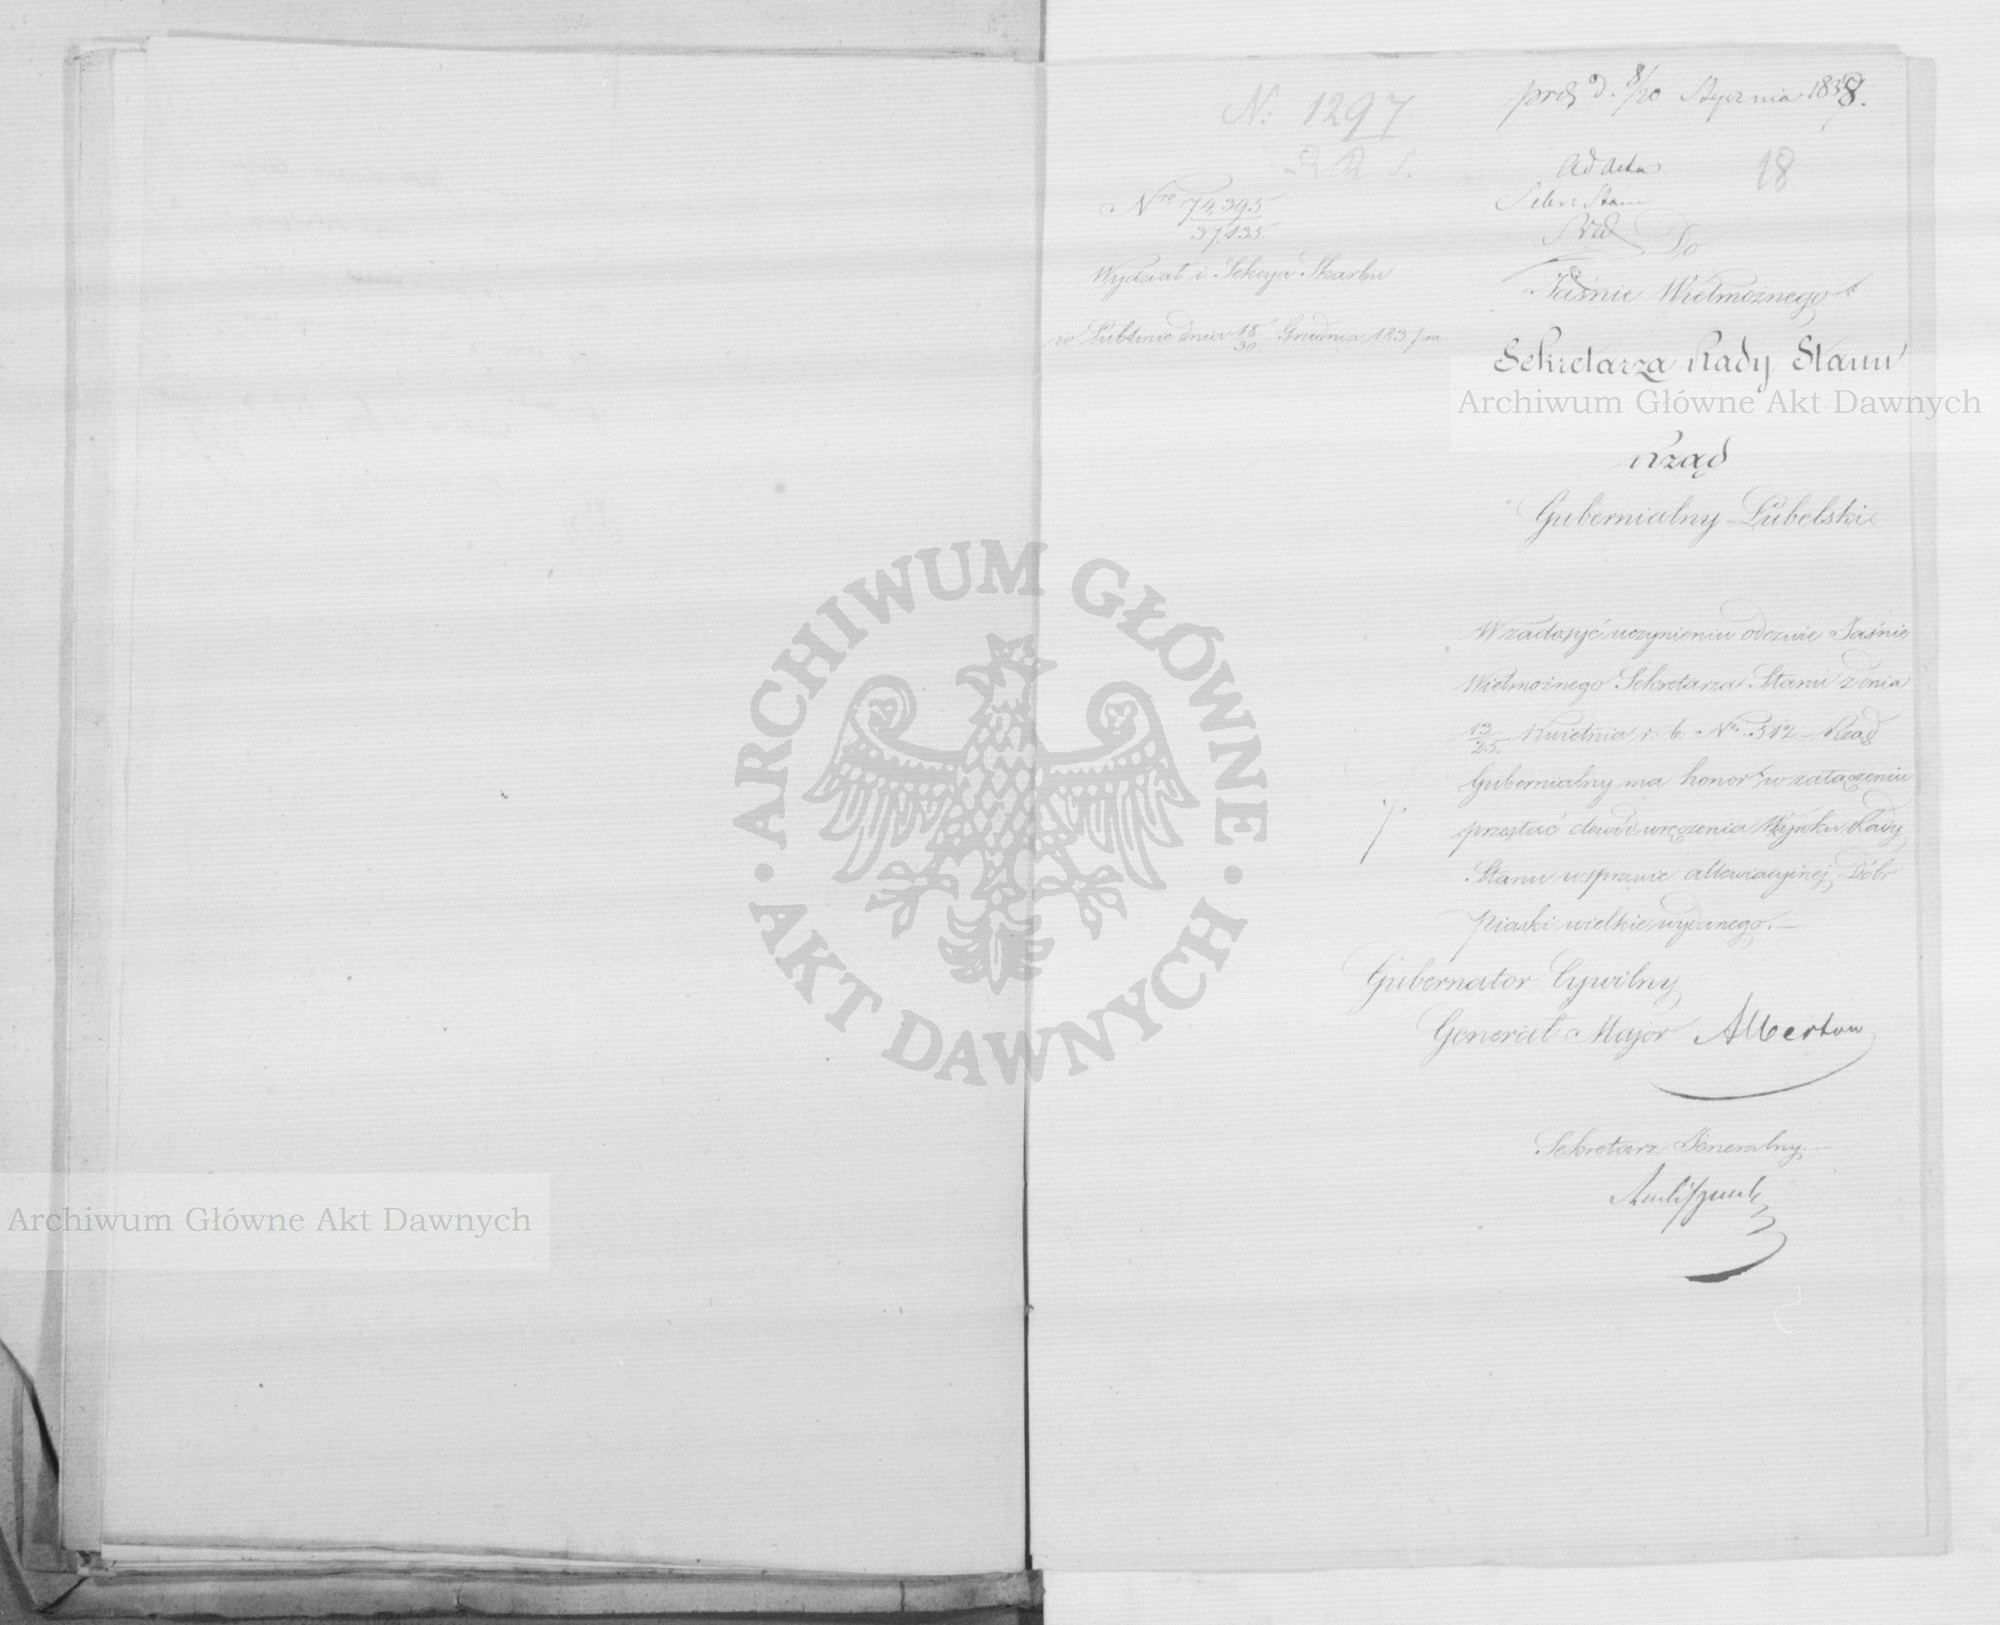 N: 1297
R R S.
prds d. 8/20 Stycznia 1838.
18
Ad acta
Nro 74,395
37,135.
Wydział i Sekcya Skarbu
w Lublinie dnia 18/30 Grudnia 1837 r.
Do
Jaśnie Wielmożnego
Sekretarza Rady Stanu
Rząd
Gubernialny Lubelski
W zadosyć uczynieniu odezwie Jaśnie
Wielmożnego Sekretarza Stanu z dnia
13/25 Kwietnia r. b. No 512 – Rząd
Gubernialny ma honor w załączeniu
przesłać dowód wręczenia Wyroku Rady
Stanu w sprawie allewiacyjnej Dóbr
Piaski wielkie wydanego. –
Gubernator Cywilny
Generał Major Albertow
Sekretarz Jeneralny. –
Archiwum Główne Akt Dawnych
Archiwum Główne Akt Dawnych
ARCHIWUM GŁÓWNE · AKT DAWNYCH ·